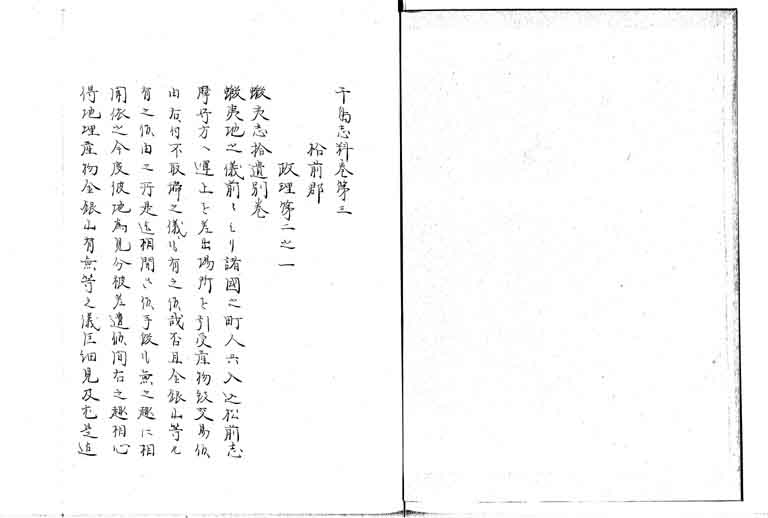 千島志料卷第三
松前郡
政理第二之一
蝦夷志拾遺別卷
蝦夷地之儀前々ヨリ諸國之町人共入込松前志
摩守方ヘ運上ヲ差出場所ヲ引受産物致交易候
由右付不取締之儀モ有之候哉否且金銀山等モ
有之候由之所是迄相開さ候手段モ無之趣ニ相
聞依之今度彼地為見分被差遣候間右之趣相心
得地理産物金銀山有無等之儀巨細見及尤是迄